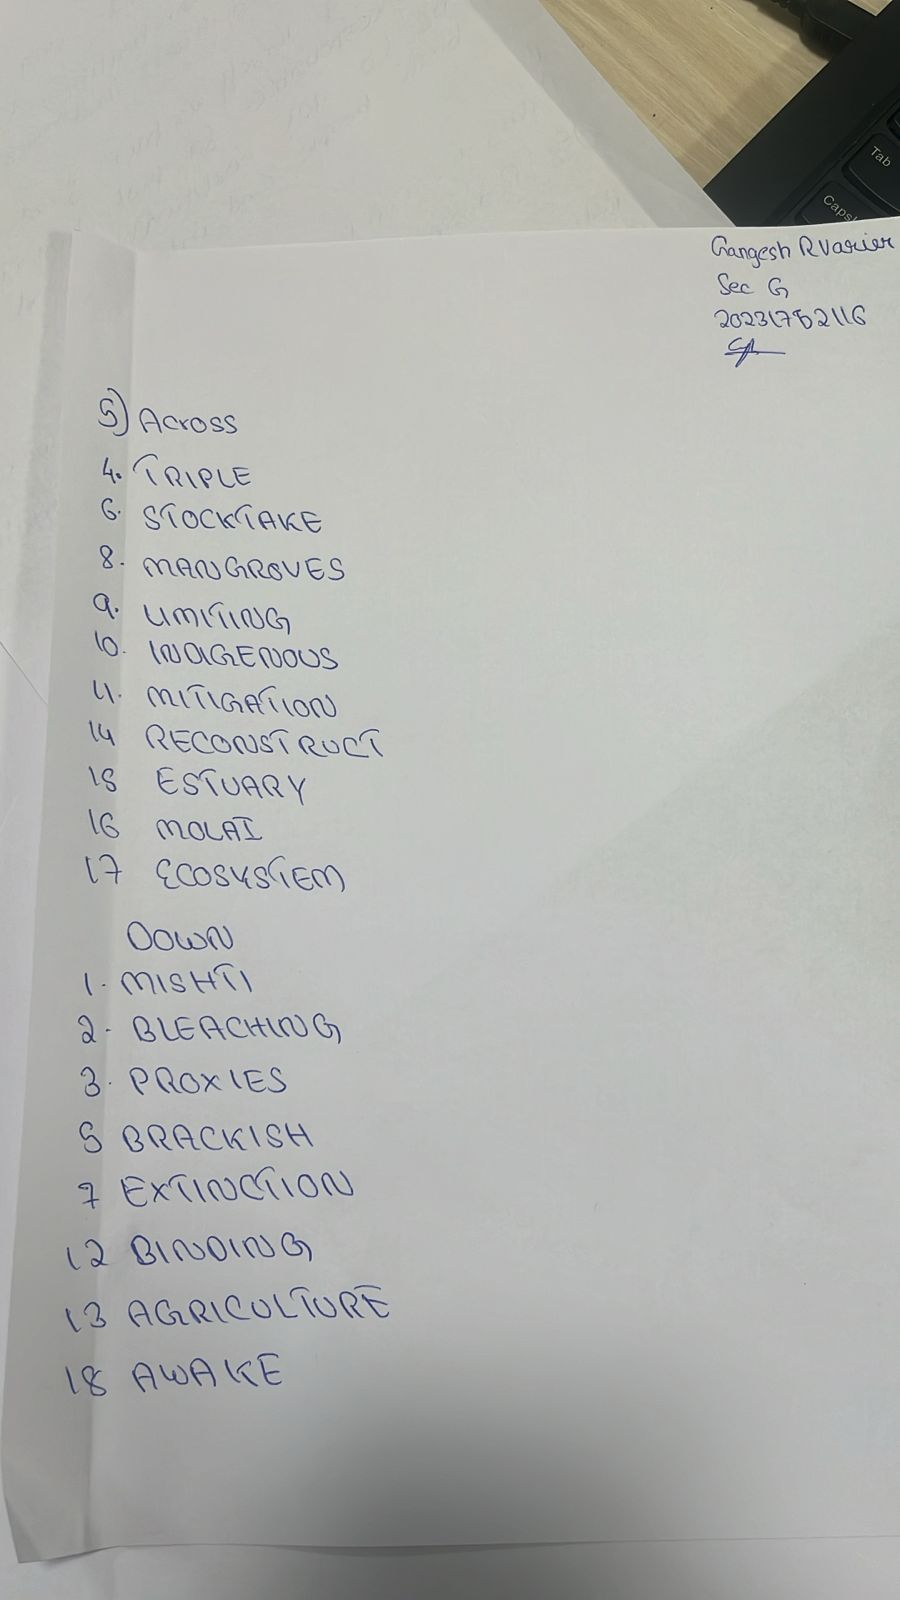 Tab
Caps
Gangesh R Varier
Sec G
20231752116
5) Across
4. TRIPLE
6. STOCKTAKE
8. MANGROVES
9. LIMITING
10. INDIGENOUS
11. MITIGATION
14 RECONSTRUCT
15 ESTUARY
16 MOLAI
17 ECOSYSTEM
DOWN
1. MISHTI
2. BLEACHING
3. PROXIES
5 BRACKISH
7 EXTINCTION
12 BINDING
13 AGRICULTURE
18 AWAKE